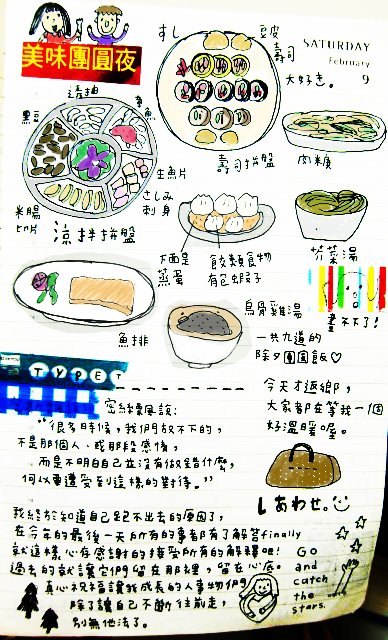 美味團圓夜
すし
豆皮壽司
SATURDAY
February
9
大好き。
黑豆
章魚
生魚片
さしみ
刺身
壽司拼盤
肉羹
米腸
切片
涼拌拼盤
下面是
蒸蛋
餃類食物
有包蝦子
芥菜湯
畫不下了!
魚排
烏骨雞湯
一共九道的
除夕團圓飯♡
TYPET
今天才返鄉,
大家都在等我一個
好溫暖喔。
密絲飄風說:
"很多時候,我們放不下的,
不是那個人、或那段感情,
而是不明白自己並沒有做錯什麼,
何以要遭受到這樣的對待。"
しあわせ。
我終於知道自己跑不出去的原因了,
在今年的最後一天所有的事都有了解答finally
就這樣心存感謝的接受所有的解釋吧!
過去的就讓它們留在那裡,留在心底。
真心祝福讓我成長的人事物們
除了讓自己不斷往前走,
別無他法了。
Go
and
catch
the
stars.